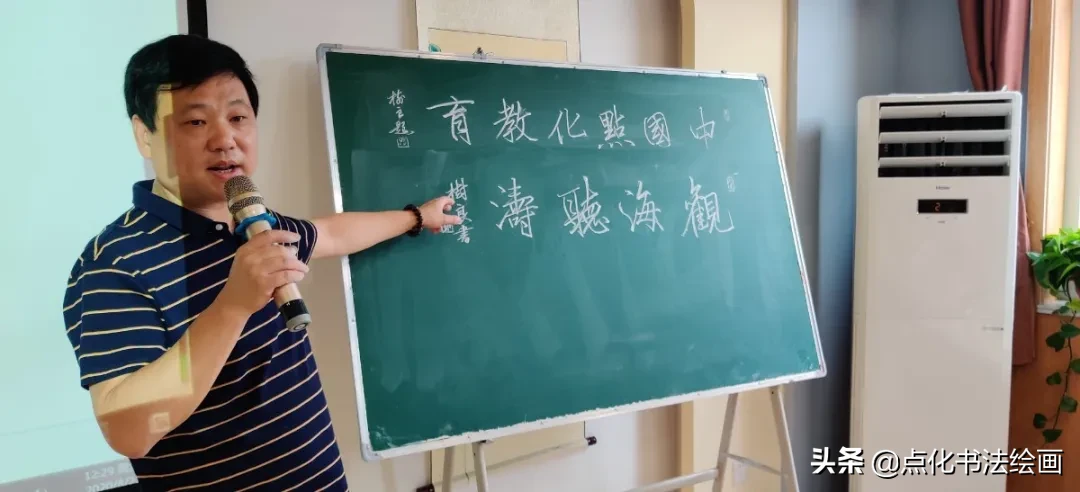 中國點化教育
題
觀海聽濤
樹 書
Haier
2
12:29
头条 @点化书法绘画